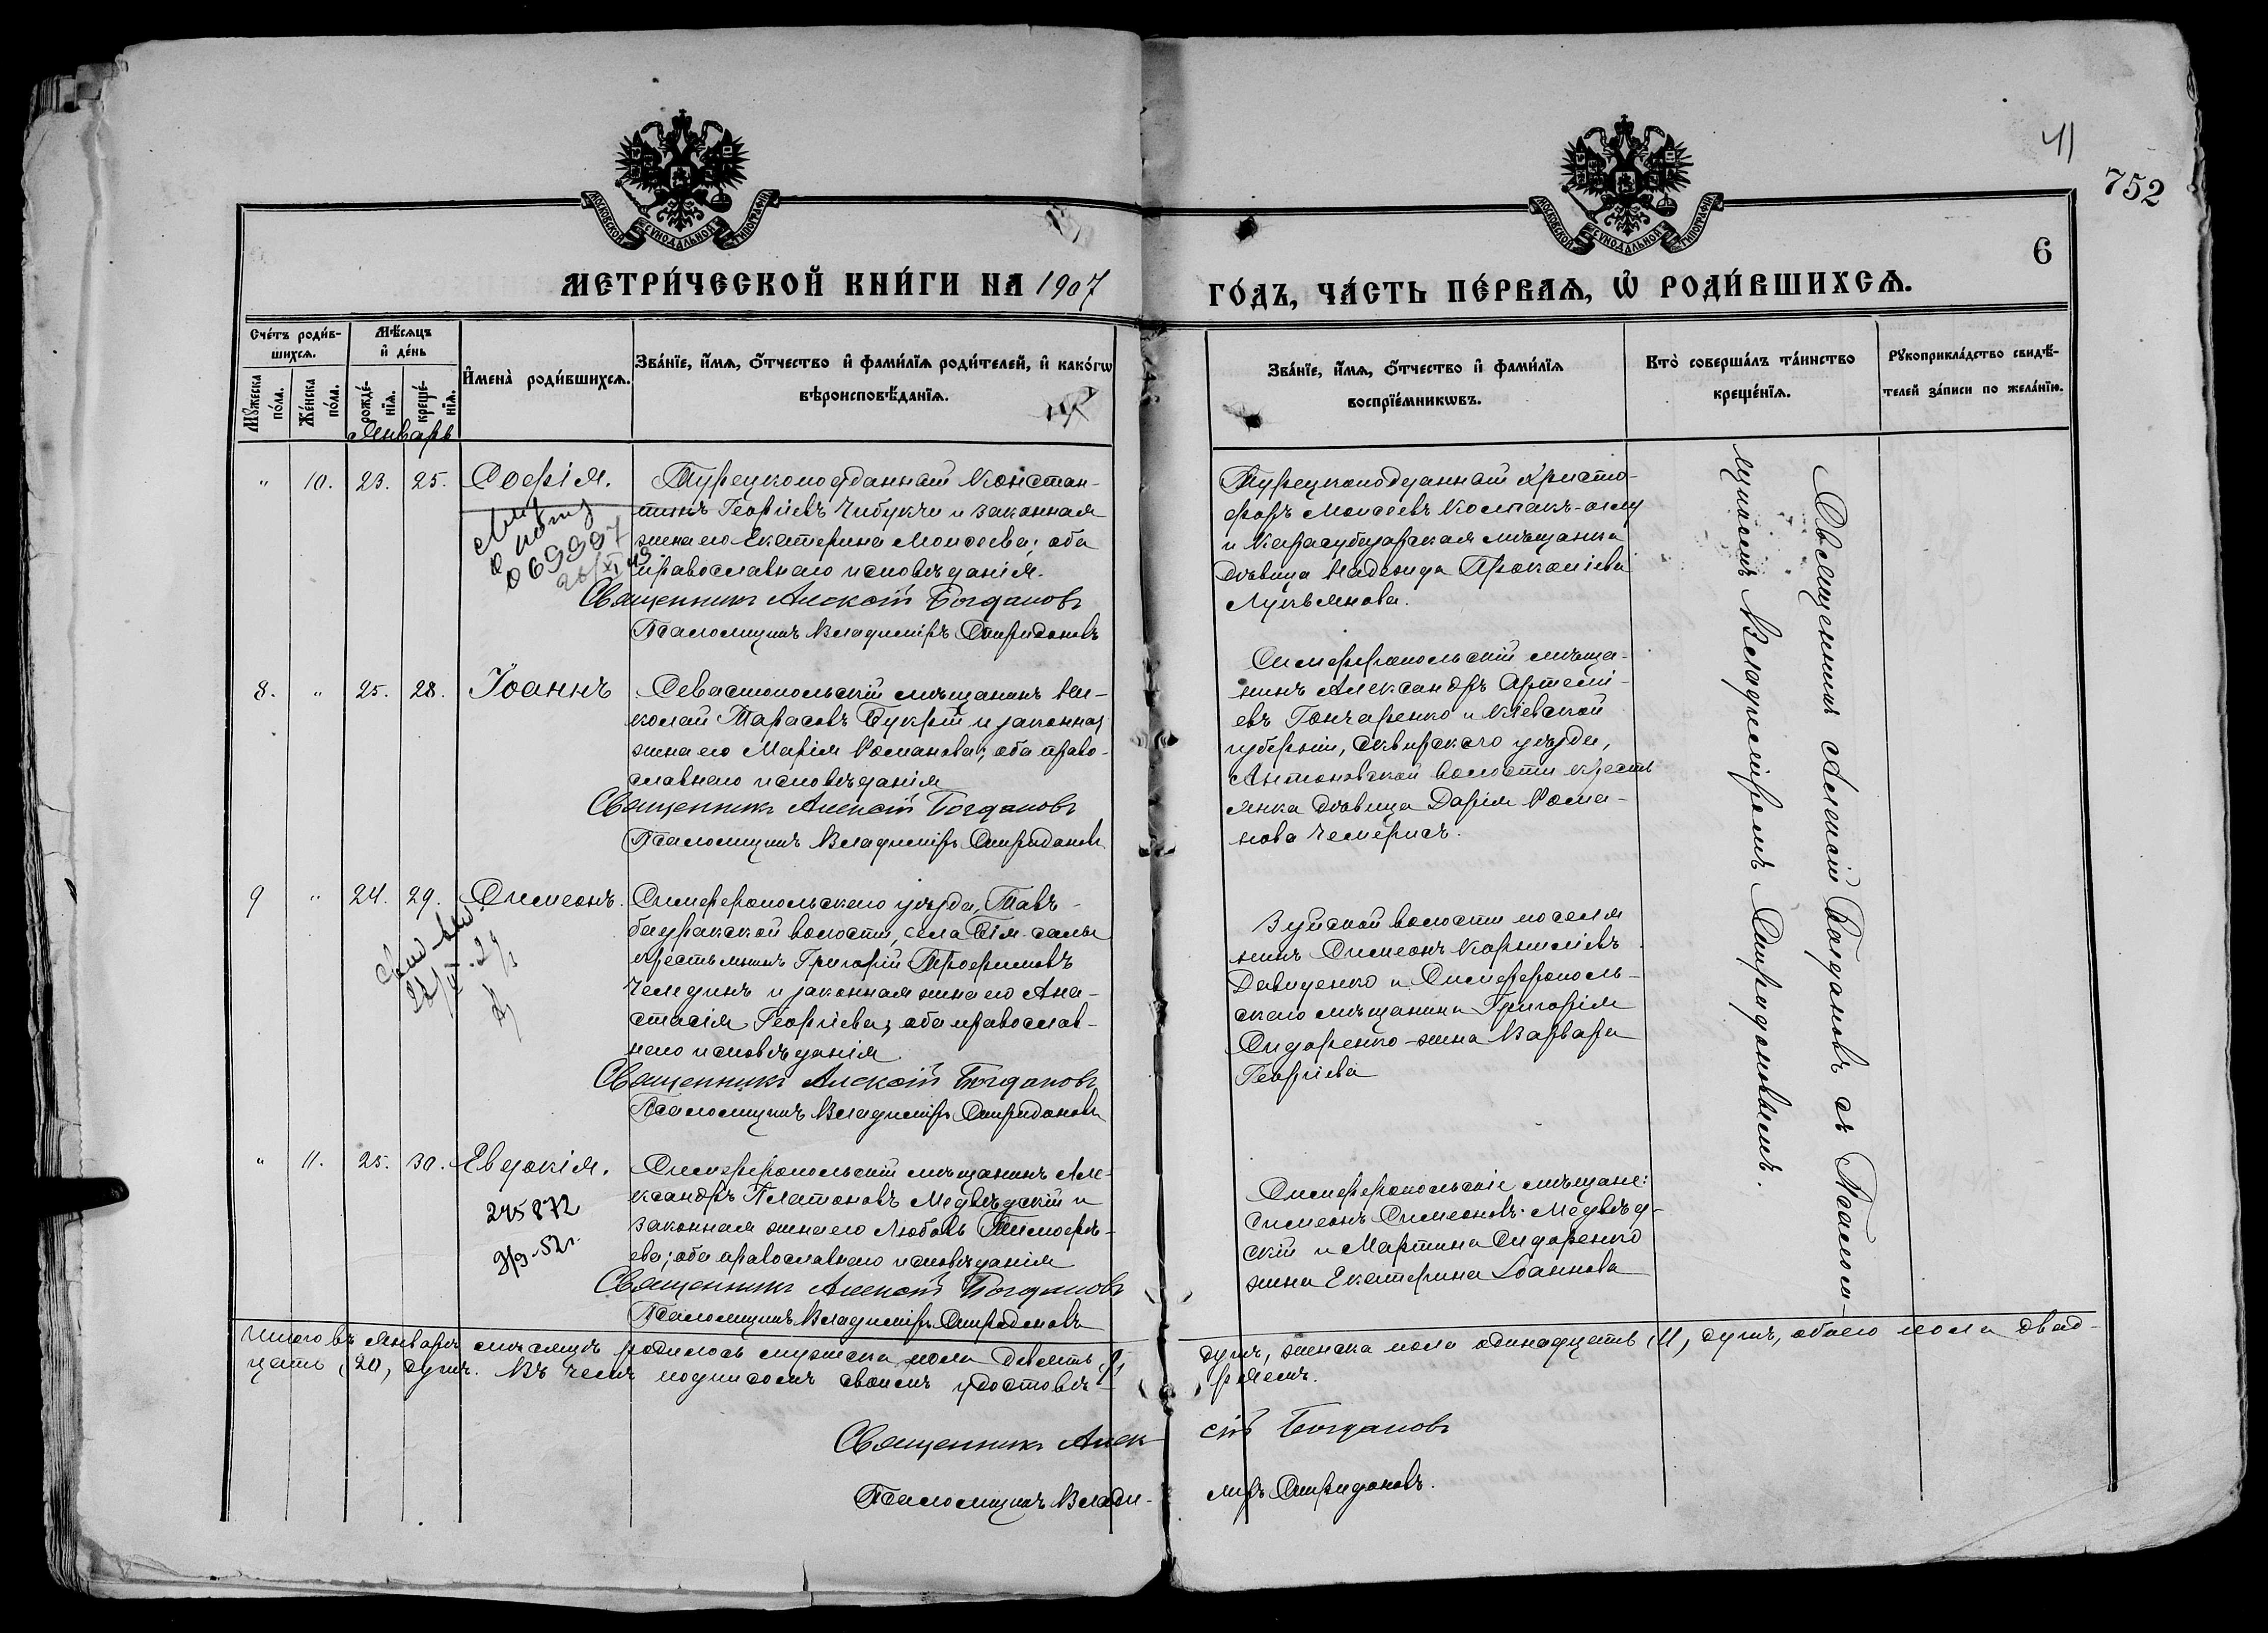 41
752
6
МОСКОВСКОЙ СѴНОДАЛЬНОЙ ТИПОГРАФІИ
МОСКОВСКОЙ СѴНОДАЛЬНОЙ ТИПОГРАФІИ
МЕТРИ́ЧЕСКОЙ КНИ́ГИ НА 1907
ГО́ДЪ, ЧА́СТЬ ПЕ́РВАѦ, Ѡ҆ РОДИ́ВШИХСѦ.
Сче́тъ роди́в-
шихсѧ.
Мꙋ́жеска по́ла.
Же́нска по́ла.
Мѣ́сѧцъ
и҆ де́нь
рожде́-
нїѧ.
креще́-
нїѧ.
И҆мена̀ роди́вшихсѧ.
Зва́нїе, и҆́мѧ, ѻ҆́тчество и҆ фами́лїѧ роди́телей, и҆ како́гѡ
вѣроисповѣ́данїѧ.
Зва́нїе, и҆́мѧ, ѻ҆́тчество и҆ фами́лїѧ
воспрїе́мникѡвъ.
Кто̀ соверша́лъ та́инство
креще́нїѧ.
Рꙋкоприкла́дство свидѣ́-
телей за́писи по жела́нїю.
Январь
" 10. 23. 25. Софія.
Турецкоподданный Констан-
тинъ Георгіевъ Чибукчи и законная
жена его Екатерина Моисеева; оба
православнаго исповѣданія.
Священникъ Алексій Богдановъ
Псаломщикъ Владиміръ Спиридоновъ
069997
Турецкоподданный Христо-
форъ Моисеевъ Колпакъ-оглу
и Карасубазарская мѣщанка
дѣвица Надежда Прокопіева
Лукьянова.
8. " 25. 28. Іоаннъ
Севастопольскій мѣщанинъ Ни-
колай Тарасовъ Букрій и законная
жена его Марія Романова; оба право-
славнаго исповѣданія
Священникъ Алексій Богдановъ
Псаломщикъ Владиміръ Спиридоновъ
Симферопольскій мѣща-
нинъ Александръ Артемі-
евъ Гончаренко и Кіевской
губерніи, Сквирскаго уѣзда,
Антоновской волости кресть
янка дѣвица Дарія Рома-
нова Чемерисъ.
9 " 24. 29. Симеонъ.
Симферопольскаго уѣзда, Тавъ-
бадракской волости, села Бія-салы
крестьянинъ Григорій Трофимовъ
Чемодинъ и законная жена его Ана-
стасія Георгіева; оба православ-
наго исповѣданія
Священникъ Алексій Богдановъ
Псаломщикъ Владиміръ Спиридоновъ
Зуйской волости поселя
нинъ Симеонъ Корниліевъ
Давиденко и Симферополь-
скаго мѣщанина Григорія
Сидоренко - жена Варвара
Георгіева
" 11. 25. 30. Евдокія.
245872
9/9-52г.
Симферопольскій мѣщанинъ Але-
ксандръ Платоновъ Медвѣдскій и
законная жена его Любовь Тимофе-
ева; оба православнаго исповѣданія
Священникъ Алексій Богдановъ
Псаломщикъ Владиміръ Спиридоновъ
Симферопольскіе мѣщане:
Симеонъ Симеоновъ Медвѣд-
скій и Мартина Сидоренко
жена Екатерина Іоаннова
Священникъ Алексій Богдановъ съ Псалом-
щикомъ Владиміромъ Спиридоновымъ.
Итого въ Январѣ мѣсяцѣ родилось мужеска пола девять (9) душъ, женска пола одинадцать (11) душъ, обоего пола двад-
цать (20) душъ. Въ чемъ подписомъ своимъ удостовѣ- ряемъ.
Священникъ Алек- сій Богдановъ
Псаломщикъ Влади- міръ Спиридоновъ.